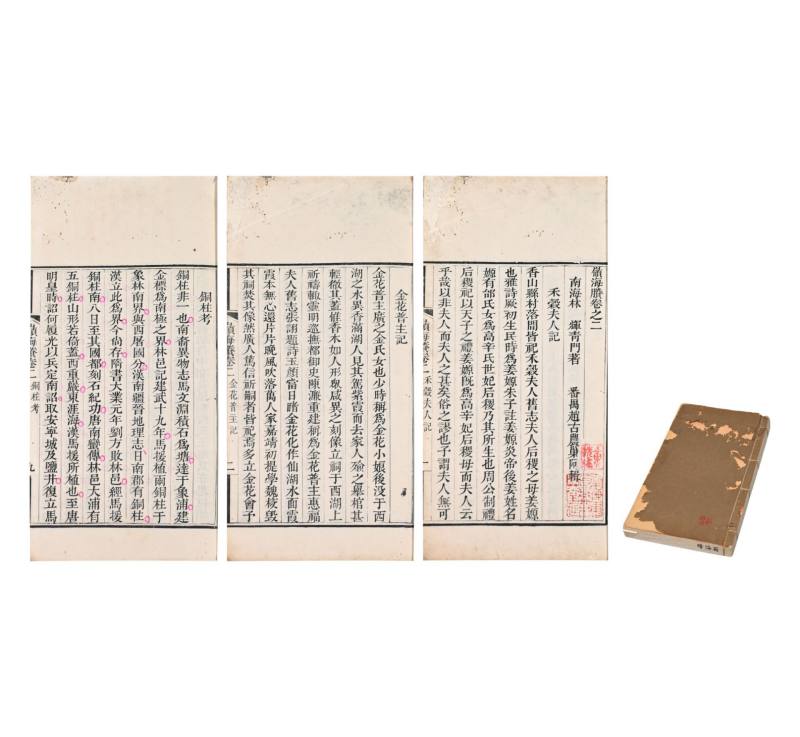 嶺海賸卷之二
南海林 輝青門著 番禺趙古農巢阿輯
禾穀夫人記
香山縣村落間皆祀禾穀夫人舊志夫人后稷之母姜嫄
也雅詩厥初生民時爲姜嫄朱子註姜嫄炎帝後姜姓名
嫄有邰氏女爲高辛氏世妃后稷乃其所生也周公制禮
后稷祀以天子之禮姜嫄旣爲高辛妃后稷母而夫人云
乎哉以非夫人而夫人之甚矣俗之謬也予謂夫人無可
嶺海賸卷二 禾穀夫人記 一
金花普主記
金花普主廣之金氏女也少時稱爲金花小娘後沒于西
湖之水異香滿湖人見其駕紫霞而去家人殮之舉棺甚
輕徹其蓋惟香木如人形衆咸異之刻像立祠于西湖上
祈禱輒靈明巡撫都御史陳濂重建稱爲金花普主惠福
夫人舊志張詡題詩玉顔當日睹金花化作仙湖水面霞
霞本無心還片片晚風吹落萬人家嘉靖初提學魏校毀
其祠焚其像然廣人篤信祈嗣者皆祀焉多立金花會予
嶺海賸卷二 金花普主記 一
銅柱考
銅柱非一也南裔異物志馬文淵積石爲塘達于象浦建
金標爲南極之界林邑記建武十九年馬援植兩銅柱于
象林南界與西屠國分漢南疆晉地理志日南郡有銅柱
漢立此爲界今尚存隋書大業元年劉方敗林邑經馬援
銅柱南八日至其國都刻石紀功唐南蠻傳林邑大浦有
五銅柱山形若倚蓋西重巖東涯海漢馬援所植也至唐
明皇時詔何履光以兵定南詔取安寧城及鹽井復立馬
嶺海賸卷二 銅柱考 九
嶺海賸